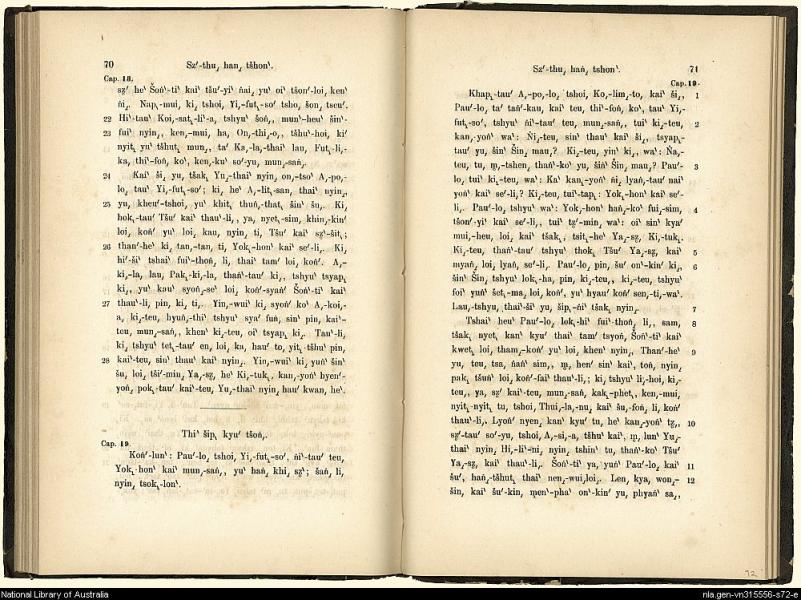 70 Sz̤ʹ-thu˛ han˛ tšhonˋ.
Cap. 18.
sz̤ʹ heˋ Šoṅˋ-tiˋ kaiˋ tšuʹ-yiˋ ṅai˛ yuˋ oiˋ tšonʹ-loi˛ kenˋ
ṅi˛. Nap˛-mui˛ ki˛ tshoi˛ Yi˛-fut˛-soʹ tsho˛ šon˛ tseuʹ.
22 Hiˋ-tauˋ Koi˛-sat˛-liˋ-a˛ tshyuˋ šoṅ˛, munˋ-heuˋ šinˋ-
23 fuiˋ nyin˛, ken˛-mui˛ ha˛ On˛-thi˛-o˛, tšhuˋ-hoi˛ kiʹ
nyit˛ yuˋ tšhut˛ mun˛; taʹ Ka˛-la˛-thaiˋ lau˛ Fut˛-li˛-
ka˛ thiˋ-foṅ˛ koˋ, ken˛-kuˋ soʹ-yu˛ mun˛-saṅ˛.
24 Kaiˋ ši˛ yu˛ tšak˛ Yu˛-thaiˋ nyin˛ on˛-tsoˋ A˛-po˛-
lo˛ tauˋ Yi˛-fut˛-soʹ; ki˛ heˋ A˛-lit˛-san˛ thaiˋ nyin˛,
25 yu˛ kheuʹ-tshoi˛ yuˋ khit˛ thuṅ˛-that˛ šin˛ šu˛. Ki˛
hok˛-tauˋ Tšuʹ kaiˋ thauˋ-li˛, ya˛ nyet˛-sim˛ khin˛-kinʹ
loi˛ koṅʹ yuˋ loi˛ kau˛ nyin˛ ti˛ Tšuʹ kaiˋ sz̤ˋ-šit˛;
26 thanʹ-heˋ ki˛ tan˛-tan˛ ti˛ Yok˛-honˋ kaiˋ seʹ-li˛. Ki˛
hiʹ-šiˋ tshaiˋ fuiˋ-thoṅ˛ li˛ thaiˋ tamʹ loi˛ koṅʹ. A˛-
ki˛-la˛ lau˛ Pak˛-ki˛-la˛ thaṅˋ-tauʹ ki˛, tshyu˛ tsyap˛
ki˛, yuˋ kauˋ syoṅ˛-seˋ loi˛ koṅʹ-syaṅʹ Šoṅˋ-tiˋ kaiˋ
27 thauˋ-li˛ pin˛ ki˛ ti˛. Yin˛-wuiˋ ki˛ syoṅʹ koˋ A˛-koi˛-
a˛ ki˛-teu˛ hyuṅ˛-thiˋ tshyuˋ syaʹ fuṅ˛ sinˋ pin˛ kaiˋ-
teu˛ mun˛-saṅ˛ khenˋ ki˛-teu˛ oiˋ tsyap˛ ki˛. Tauˋ-li˛
ki˛ tshyuˋ tet˛-tauʹ en˛ loi˛ ka˛ hauʹ to˛ yit˛ tšhuˋ pin˛
28 kaiˋ-teu˛ sinˋ thauˋ kaiˋ nyin˛. Yin˛-wuiˋ ki˛ yuṅˋ šinˋ
šu˛ loi˛ tšiʹ-min˛ Ya˛-sz̤˛ heˋ Ki˛-tuk˛, kan˛-yoṅˋ hyenʹ-
yoṅ˛ pok˛-tauʹ kaiˋ-teu˛ Yu˛-thaiˋ nyin˛ hauʹ kwan˛ heˋ.
Thiˋ šip˛ kyuʹ tšoṅ˛.
Cap. 19.
Koṅʹ-lunˋ: Pauʹ-lo˛ tshoi˛ Yi˛-fut˛-soʹ, ṅiˋ-tauʹ teu˛
Yok˛-honˋ kaiˋ mun˛-saṅ˛, yuˋ haṅ˛ khi˛ sz̤ˋ; šaṅ˛ li˛
nyin˛ tsok˛-lonˋ.
Sz̤ʹ-thu˛ haṅ˛ tshonˋ. 71
Cap. 19.
Khap˛-tauʹ A˛-po˛-lo˛ tshoi˛ Ko˛-lim˛-to˛ kaiˋ ši˛, 1
Pauʹ-lo˛ taʹ taṅʹ-kau˛ kaiˋ teu˛ thiˋ-foṅ˛ koˋ, tauʹ Yi˛-
fut˛-soʹ, tshyuˋ ṅiˋ-tauʹ teu˛ mun˛-saṅ˛, tuiˋ ki˛-teu˛ 2
kan˛-yoṅˋ waˋ: Ṅi˛-teu˛ sinˋ thauˋ kaiˋ ši˛, tsyap˛-
tauʹ yu˛ šinˋ Šin˛ mau˛? Ki˛-teu˛ yinˋ ki˛, waˋ: Ṅa˛-
teu˛ tu˛ m̤˛-tshen˛ thaṅˋ-koˋ yu˛ šiṅˋ Šin˛ mau˛? Pauʹ- 3
lo˛ tuiˋ ki˛-teu˛ waˋ: Kaˋ kan˛-yoṅˋ ṅi˛ lyaṅ˛-tauʹ nai
yoṅˋ kaiˋ seʹ-li˛? Ki˛-teu˛ tuiˋ-tap˛: Yok˛-honˋ kaiˋ seʹ-
li˛. Pauʹ-lo˛ tshyuˋ waˋ: Yok˛-honˋ haṅ˛-koʹ fui˛-sim˛ 4
tšonʹ-yiˋ kaiˋ seʹ-li˛, tuiˋ tz̤ʹ-min˛ waˋ: oiˋ sinˋ kyaʹ
mui˛-heu˛ loi˛ kaiˋ tšak˛, tsit˛-heˋ Ya˛-sz̤˛ Ki˛-tuk˛.
Ki˛-teu˛ thaṅˋ-tauʹ tshyuˋ thok˛ Tšuʹ Ya˛-sz̤˛ kaiˋ 5
myaṅ˛ loi˛ lyaṅ˛ seʹ-li˛. Pauʹ-lo˛ pin˛ šuʹ onˋ-kinʹ ki˛, 6
šinˋ Šin˛ tshyuˋ lok˛-ha˛ pin˛ ki˛-teu˛, ki˛-teu˛ tshyuˋ
foiˋ yuṅˋ šet˛-ma˛ loi˛ koṅʹ, yuˋ hyauʹ koṅʹ sen˛-ti˛-waˋ.
Lau˛-tshyu˛ thaiˋ-šiˋ yu˛ šip˛-ṅiˋ tšak˛ nyin˛. 7
Tshaiˋ heuˋ Pauʹ-lo˛ lok˛-hiˋ fuiˋ-thoṅ˛ li˛, sam˛ 8
tšak˛ nyet˛ kanˋ kyuʹ thaiˋ tamʹ tsyoṅ˛ Šoṅˋ-tiˋ kaiˋ
kwet˛ loi˛ tham˛-koṅʹ yuˋ loi˛ khenˋ nyin˛. Thanʹ-heˋ 9
yu˛ teu˛ tsa˛ ṅaṅˋ sim˛, m̤˛ herʹ sinˋ kaiˋ, toṅ˛ nyin˛
pak˛ tšunˋ loi˛ koṅʹ-faiˋ thauˋ-li˛; ki˛ tshyuˋ li˛-hoi˛ ki˛-
teu˛, ya˛ sz̤ʹ kaiˋ-teu˛ mun˛-saṅ˛ kak˛-phet˛, ken˛-mui˛
nyit˛-nyit˛ tu˛ tshoi˛ Thui˛-la˛-nu˛ kaiˋ šu˛-foṅ˛ li˛ koṅʹ
thauˋ-li˛. Lyoṅʹ nyen˛ kanˋ kyuʹ tu˛ heˋ kan˛-yoṅˋ tz̤˛ 10
sz̤ʹ-tauʹ soʹ-yu˛ tshoi˛ A˛-si˛-a˛ tšhuˋ kaiˋ, m̤˛ lunˋ Yu˛-
thaiˋ nyin˛ Hi˛-liˋ-ni˛ nyin˛ tshinˋ tu˛ thaṅˋ-koˋ Tšuʹ
Ya˛-sz̤˛ kaiˋ thauˋ-li˛. Šoṅˋ-tiˋ ya˛ yuṅˋ Pauʹ-lo˛ kaiˋ 11
šuʹ, haṅ˛-tšhut˛ thaiˋ nen˛-wui˛loi˛. Len˛ kya˛ won˛- 12
šin˛ kaiˋ šuʹ-kin˛ m̤en˛-phaˋ onˋ-kinʹ yu˛ phyaṅˋ sa˛,
92
National Library of Australia
nla.gen-vn315556-s72-e